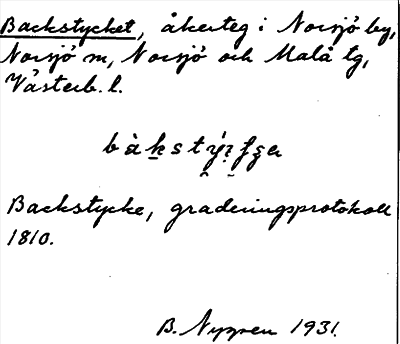 Backstycket, åkerteg i Norsjö by,
Norsjö m, Norsjö och Malå tg,
Västerb. l.
Backstycke, graderingsprotokoll
1810.
B. Nygren 1931.